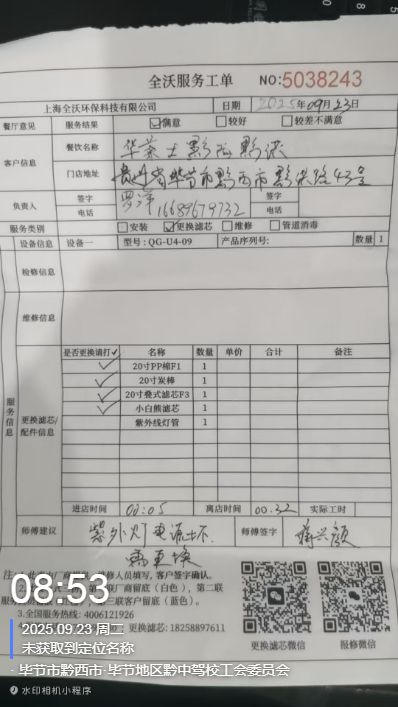 全沃服务工单 NO:5038243
上海全沃环保科技有限公司 日期 2025年09月23日
餐厅意见 服务结果 ☑满意 □较好 □较差不满意
客户信息 餐饮名称 华莱士黔西黔伏
门店地址 贵州省毕节市黔西市黔伏路43号
负责人 签字 罗洋 签字
电话 16689679732 电话
服务类别 □安装 ☑更换滤芯 □维修 □管道消毒
设备信息 设备一 型号:QG-U4-09 产品序列号: 数量 1
检修信息
维修信息
服务信息
更换滤芯/配件信息
是否更换请打✓ 名称 数量 单价 合计 备注
✓ 20寸PP棉F1 1
✓ 20寸炭棒 1
✓ 20寸叠式滤芯F3 1
✓ 小白熊滤芯 1
紫外线灯管 1
进店时间 00:05 离店时间 00:32 实际工时
师傅建议 紫外灯电源坏 师傅签字
需更换
维修人员填写,客户签字确认。
厂留底(白色),第二联
客户留底(蓝色)。
3.全国服务热线:4006121926
更换滤芯:18258897611
更换滤芯微信 报修微信
08:53
2025.09.23 周二
未获取到定位名称
·毕节市黔西市·毕节地区黔中驾校工会委员会
水印相机小程序